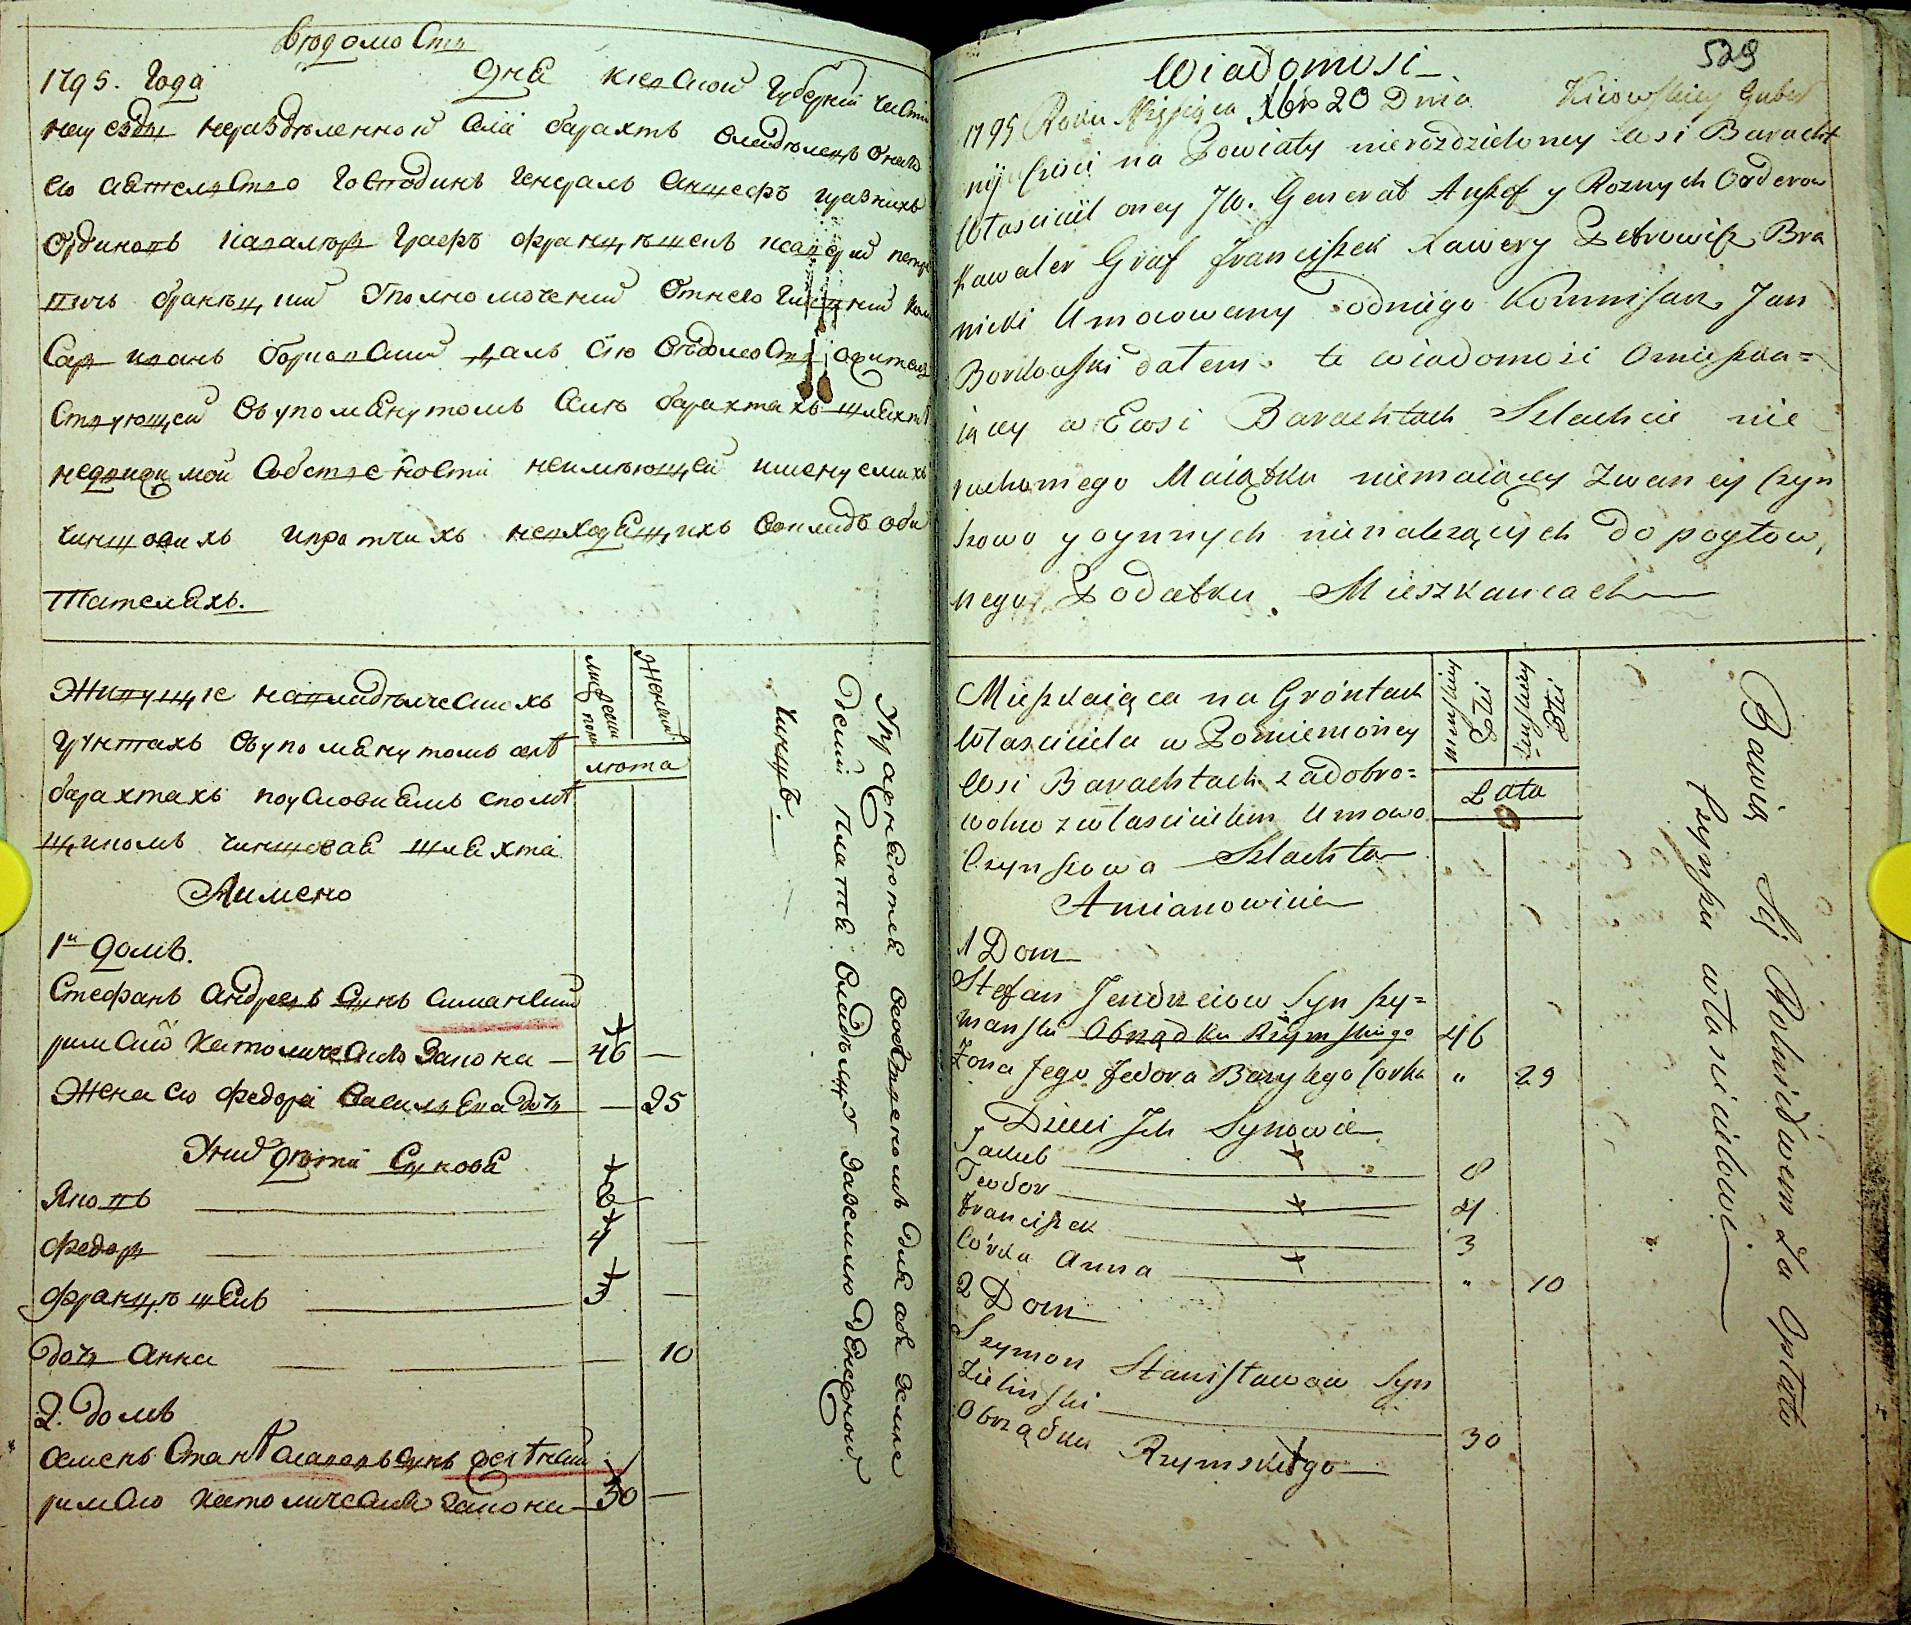 Вѣдомость
1795. Года дня Киевской Губернии части
на уезды неразделенной села барахтъ владѣлецъ онаго
его Сиятелство Господинъ Генералъ Аншефъ разнихъ
Ординовъ Кавалеръ Графъ Францѣшекъ Ксаверий Петро
вичъ бранѣцкий Уполномочений Отнего Комми
саръ иванъ борковский далъ сию вѣдомость ожителс
ствующей въупомянутомъ селѣ барахтахъ шляхтѣ
недвижимой Собствености неимѣющей именуемихъ
чиншовихъ ипротчихъ невходящихъ воокладъ оби
тателяхъ.
Живущие навладѣлческихъ
Грунтахъ въупомянутомъ селѣ
барахтахъ поусловиямъ спомѣ
щикомъ чиншовая шляхта
Аимено
1й домъ.
Стефанъ Андреевъ Сынъ симанский
римской католического Закона — 46 —
Жена его Федора Василева дочь — 25
Унихъ дѣти Синовя
Яковъ 8
Федоръ 4
Францѣшекъ 3
дочь Анна 10
2. домъ
семенъ Станѣславовъ сынъ зелѣнский
римского католического закона — 30 —
мужески полъ
Женский
лѣта
Упражняются
земли платя владѣлцу завземлю денежной
Чиншъ.
529
Wiadomosi
1795 Roku Miesiąca Xbra 20 Dnia Kiiowskiey Guber
nij Części na Powiaty nierozdzieloney wsi Baracht
Własciciil oney JW. Generał Anszef y Roznych Orderow
Kawaler Graf Franciszek Xawery Petrowicz Bra
nicki Umocowany odniego Kommisarz Jan
Borkowski dałem te wiadomosi Omieszka=
iącey w Ewsi Barachtach Szlachcie nie
ruchomego Maiątku niemaiącey zwaney Czyn
szowo y oynnych nienalezących do pogłow,
nego Podatku Mieszkancach
Mieszkaiąca na Gróntach
Własciciela w Pomiemoney
Wsi Barachtach zadobro=
wolno zwłascicielem Umowo
Czynszowa Szlachta
A mianowicie
1 Dom
Stefan Jendrzeiow Syn szy=
manski Obrządku Rzymskiego 46
Zona Jego Fedora Bazylego Corka " 29
Dzieci Jch Synowie
Jakub 8
Teodor 4
Franciszek 3
Córka Anna " 10
2 Dom
Szymon Stanisławow Syn
Zielinski 30
Obrządku Rzymskiego
Płci męskiey
Płci
Lata
Bawią się Rolnictwem za Opłato
Czynszu własicielowi